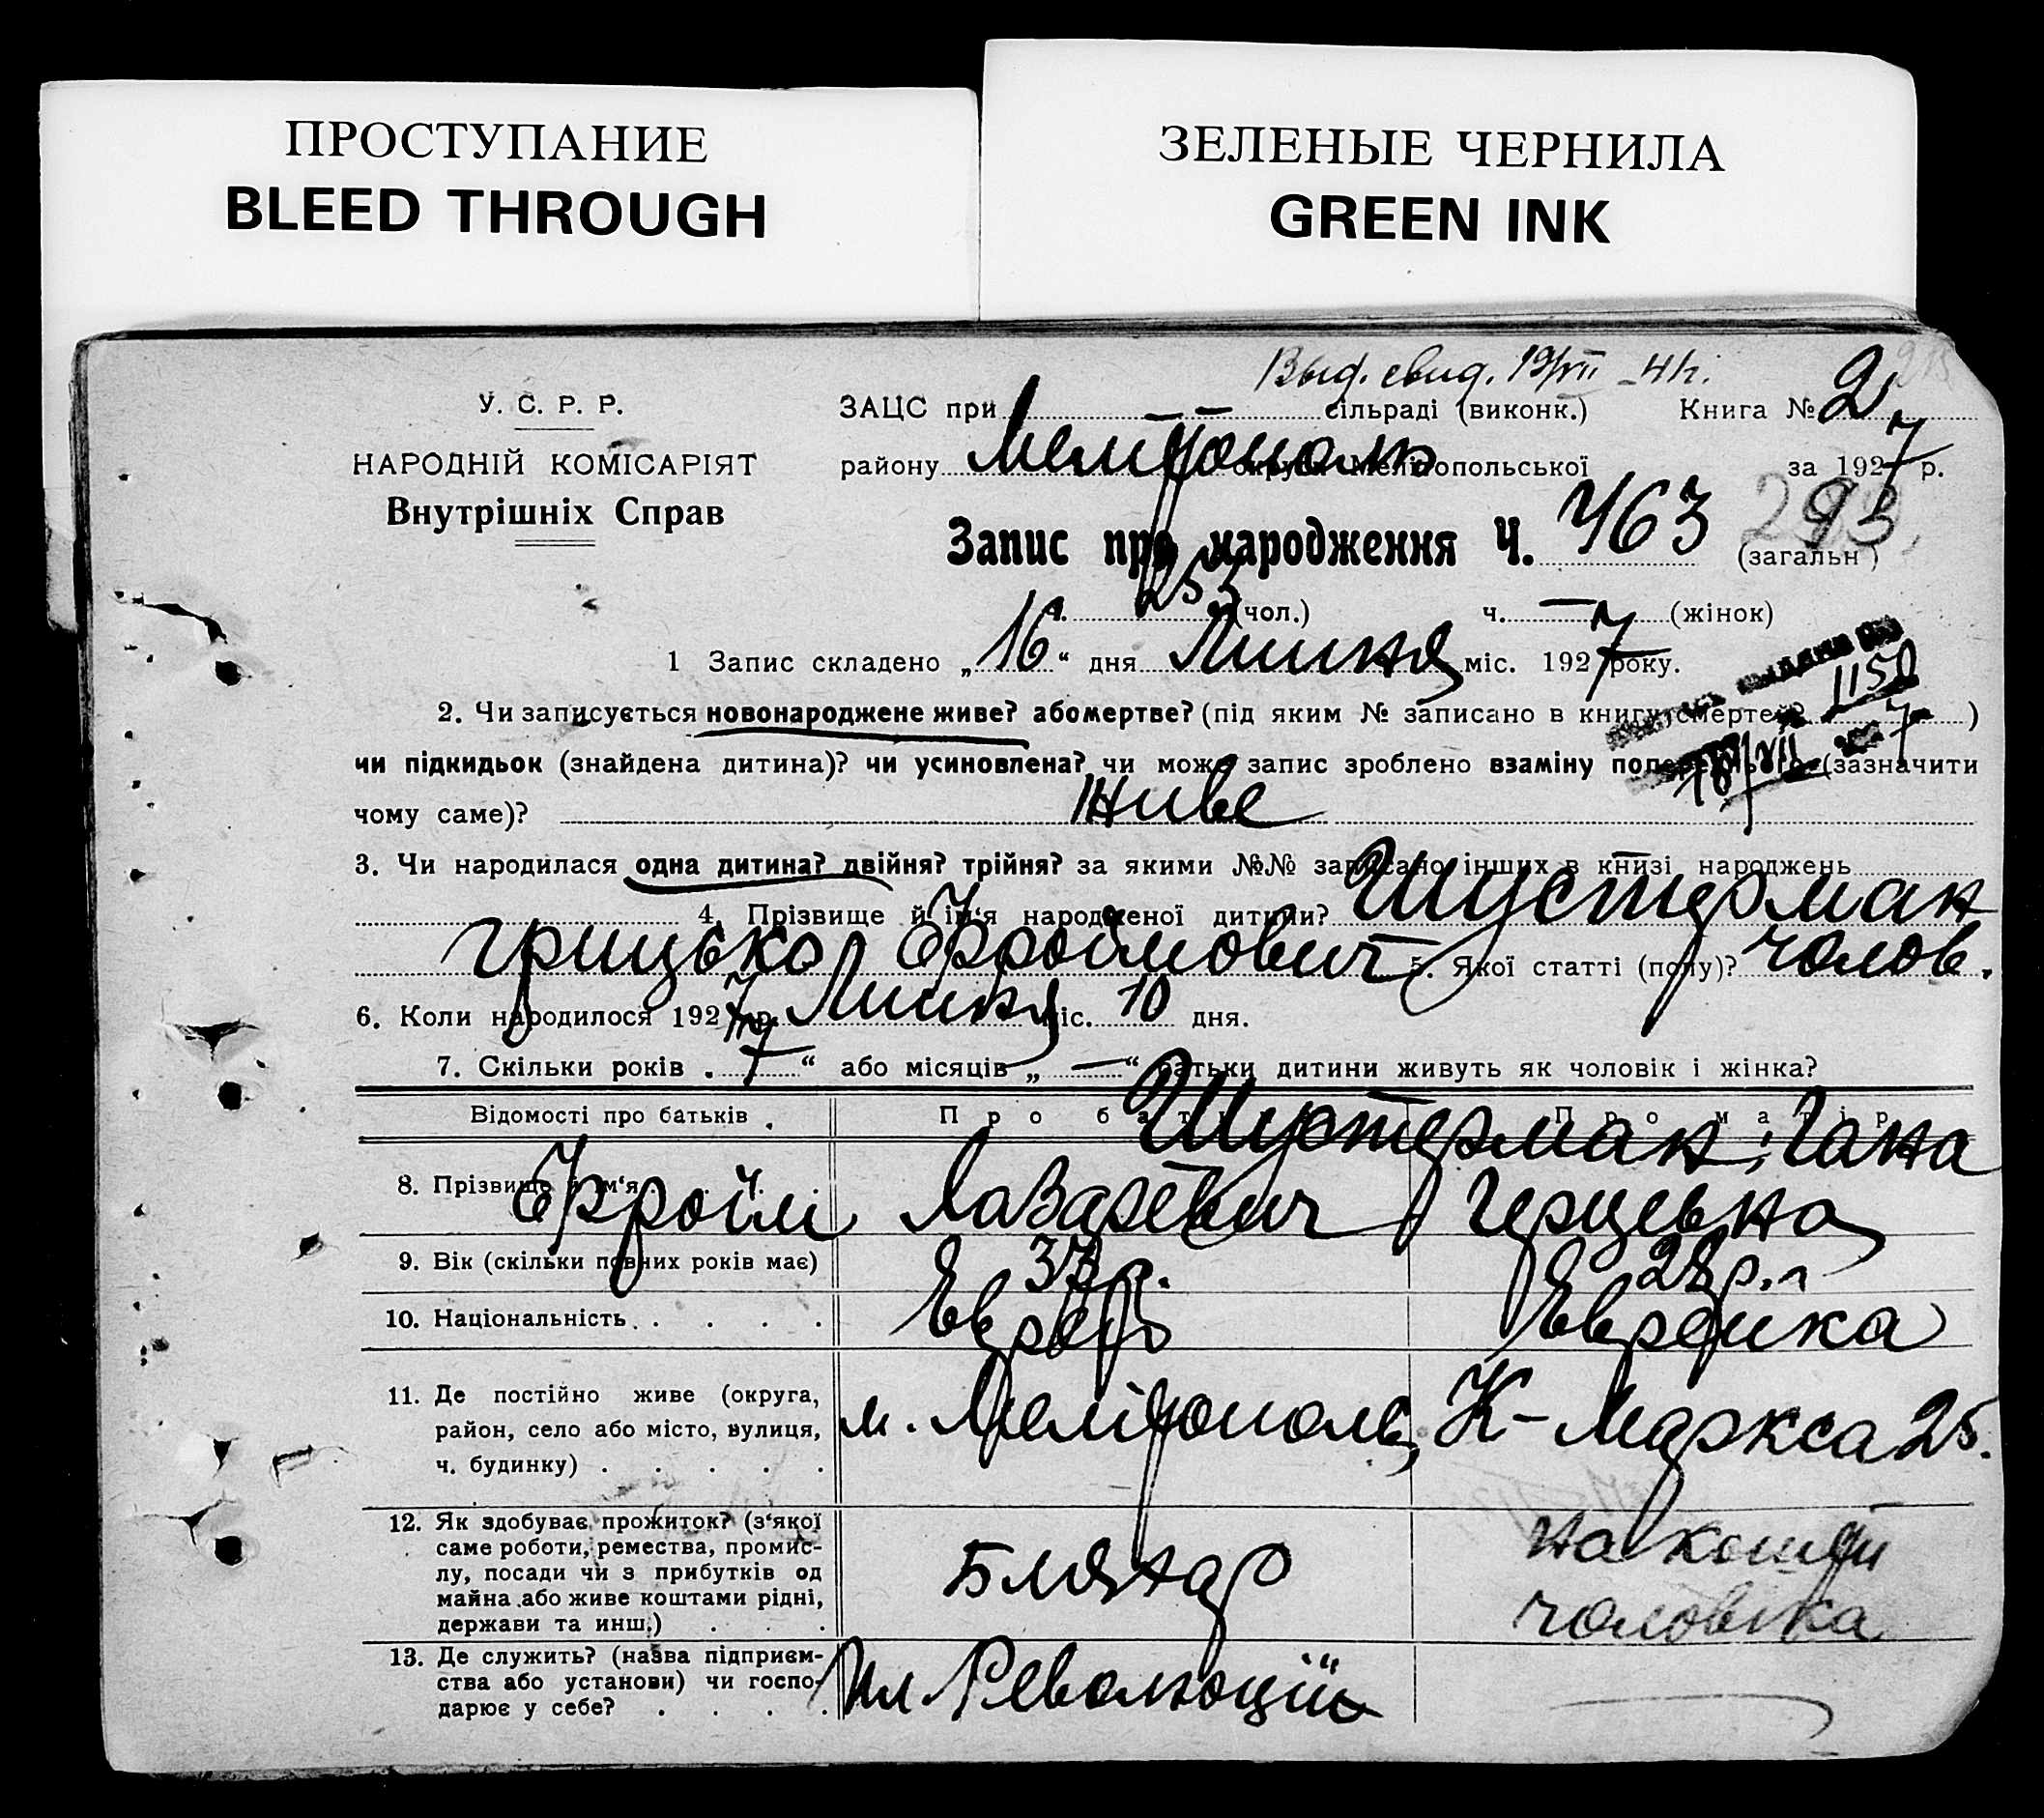 ПРОСТУПАНИЕ
BLEED THROUGH
ЗЕЛЕНЫЕ ЧЕРНИЛА
GREEN INK
Выд. свид. 19/VII
У. С. Р. Р.
НАРОДНІЙ КОМІСАРІЯТ
Внутрішніх Справ
ЗАЦС при сільраді (виконк.) Книга № 2
району Мелітополь округи Мелітопольської за 1927 р.
Запис про народження Ч. 463 293 (загальн)
ч. 255 (чол.) ч. — (жінок)
1 Запис складено „16“ дня Липня міс. 1927 року.
1150
2. Чи записується новонароджене живе? або мертве? (під яким № записано в книгу смертей? )
чи підкидьок (знайдена дитина)? чи усиновлена? чи може запис зроблено взаміну попереднього (зазначити
чому саме)? Живе
3. Чи народилася одна дитина? двійня? трійня? за якими №№ записано інших в книзі народжень —
4. Прізвище й ім‘я народженої дитини? Шустерман
Грицько Єфроїмович 5. Якої статті (полу)? чолов.
6. Коли народилося 1927 р. Липня міс. 10 дня.
7. Скільки років „7“ або місяців „—“ батьки дитини живуть як чоловік і жінка?
Відомості про батьків Про батька Про матір
8. Прізвище й ім‘я Шустерман, Гана
Єфроїм Лазаревич Герцевна
9. Вік (скільки повних років має) 37 р. 28 р.
10. Національність Єврей Єврейка
11. Де постійно живе (округа,
район, село або місто, вулиця,
ч. будинку) м. Мелітополь, К-Маркса 25.
12. Як здобуває прожиток? (з‘якої
саме роботи, ремества, промис-
лу, посади чи з прибутків од
майна або живе коштами рідні,
держави та инш.) Бляхар на кошти
чоловіка
13. Де служить? (назва підприєм-
ства або установи) чи госпо-
дарює у себе? Пл Революції —